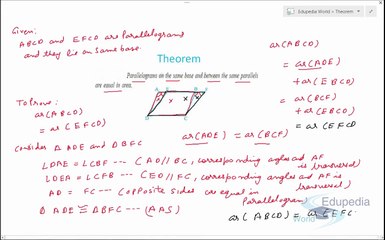 Edupedia World - Theorem
Given:
ABCD and EFCD are Parallelograms
and they lie on same base.
Theorem
Parallelograms on the same base and between the same parallels
are equal in area.
To Prove:
ar(ABCD)
= ar(EFCD)
Consider △ ADE and △BFC
ar(ADE) = ar(BCF)
∠DAE = ∠CBF --- (AD//BC, corresponding angles and AF is transversal)
∠DEA = ∠CFB --- (ED//FC, corresponding angles and AF is transversal)
AD = FC --- (opposite sides are equal in Parallelogram)
△ ADE ≅ △BFC --- (AAS)
ar(ABCD)
= ar(ADE)
+ ar(EBCD)
= ar(BCF)
+ ar(EBCD)
= ar(EFCD
ar(ABCD) = ar(EFC
Edupedia
World